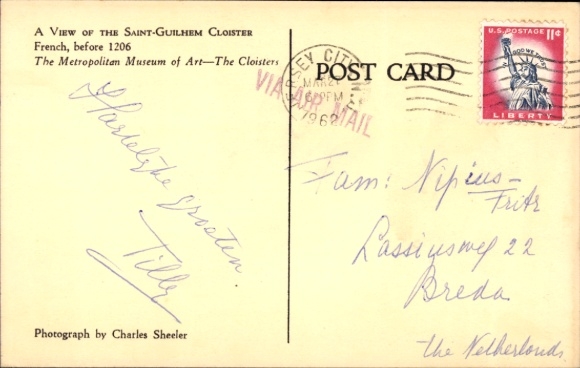 A VIEW OF THE SAINT-GUILHEM CLOISTER
French, before 1206
The Metropolitan Museum of Art—The Cloisters
Hartelijke Groeten.
Tilly
Photograph by Charles Sheeler
POST CARD
JERSEY CITY
MAR 21
PM
1962
VIA AIR MAIL
U.S. POSTAGE 11¢
LIBERTY
Fam: Nipius-
Fritz
Lassusweg 22
Breda
the Netherlands